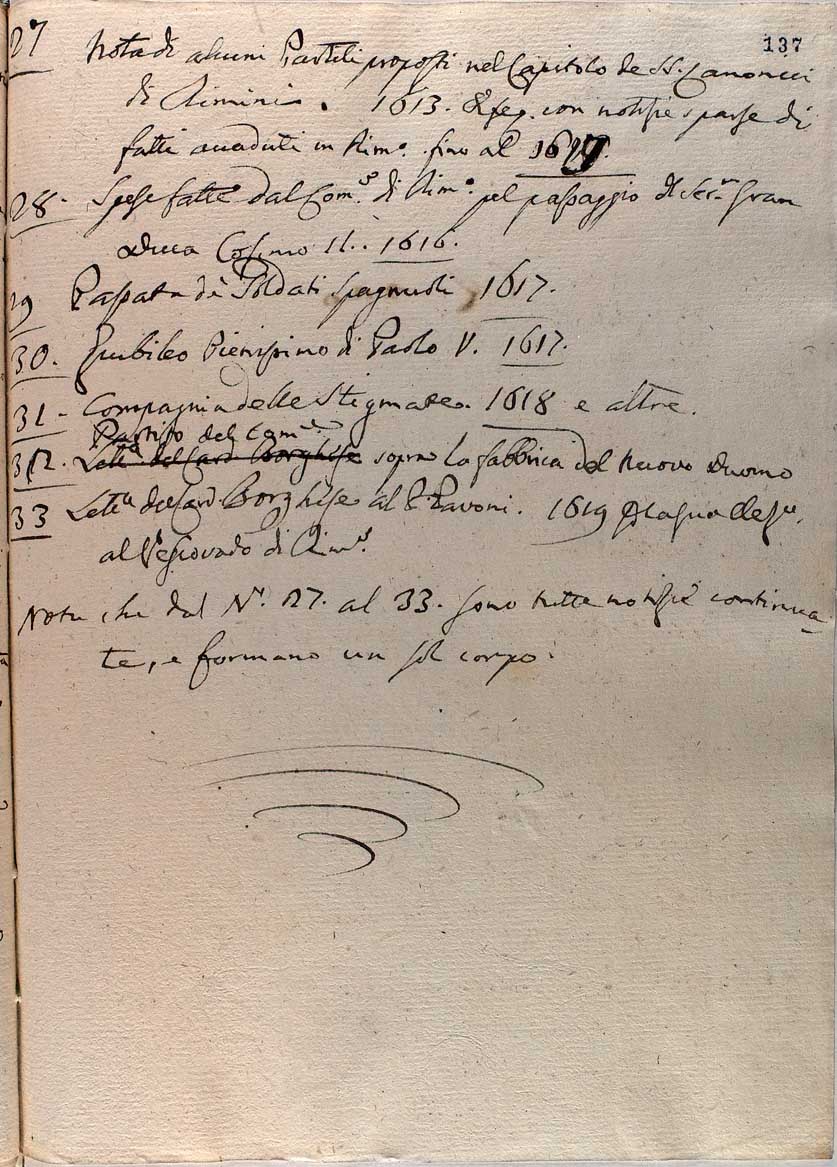 137
27 Nota di alcuni Partiti proposti nel Capitolo de SS. Canonici
di Rimini. 1613. & seg. con notizie sparse di
fatti accaduti in Rim.o fino al
28. Spese fatte dal Com.e di Rim.o pel passaggio di Ser.m Gran
duca Cosimo II.. 1616.
29 Passata de Soldati Spagnuoli 1617.
30. Giubileo Pienissimo di Paolo V. 1617.
31. Compagnia delle Stigmate. 1618 e altre.
Partito del Com.e
32. Lett.a del Card Borghese sopra la fabbrica del nuovo duomo
33 Lett.a del Card. Borghese al P. Pavoni. 1619
al Vescovado di Rim.o
Nota che dal N.o 27. al 33. sono tutte notizie continua-
te, e formano un sol corpo.